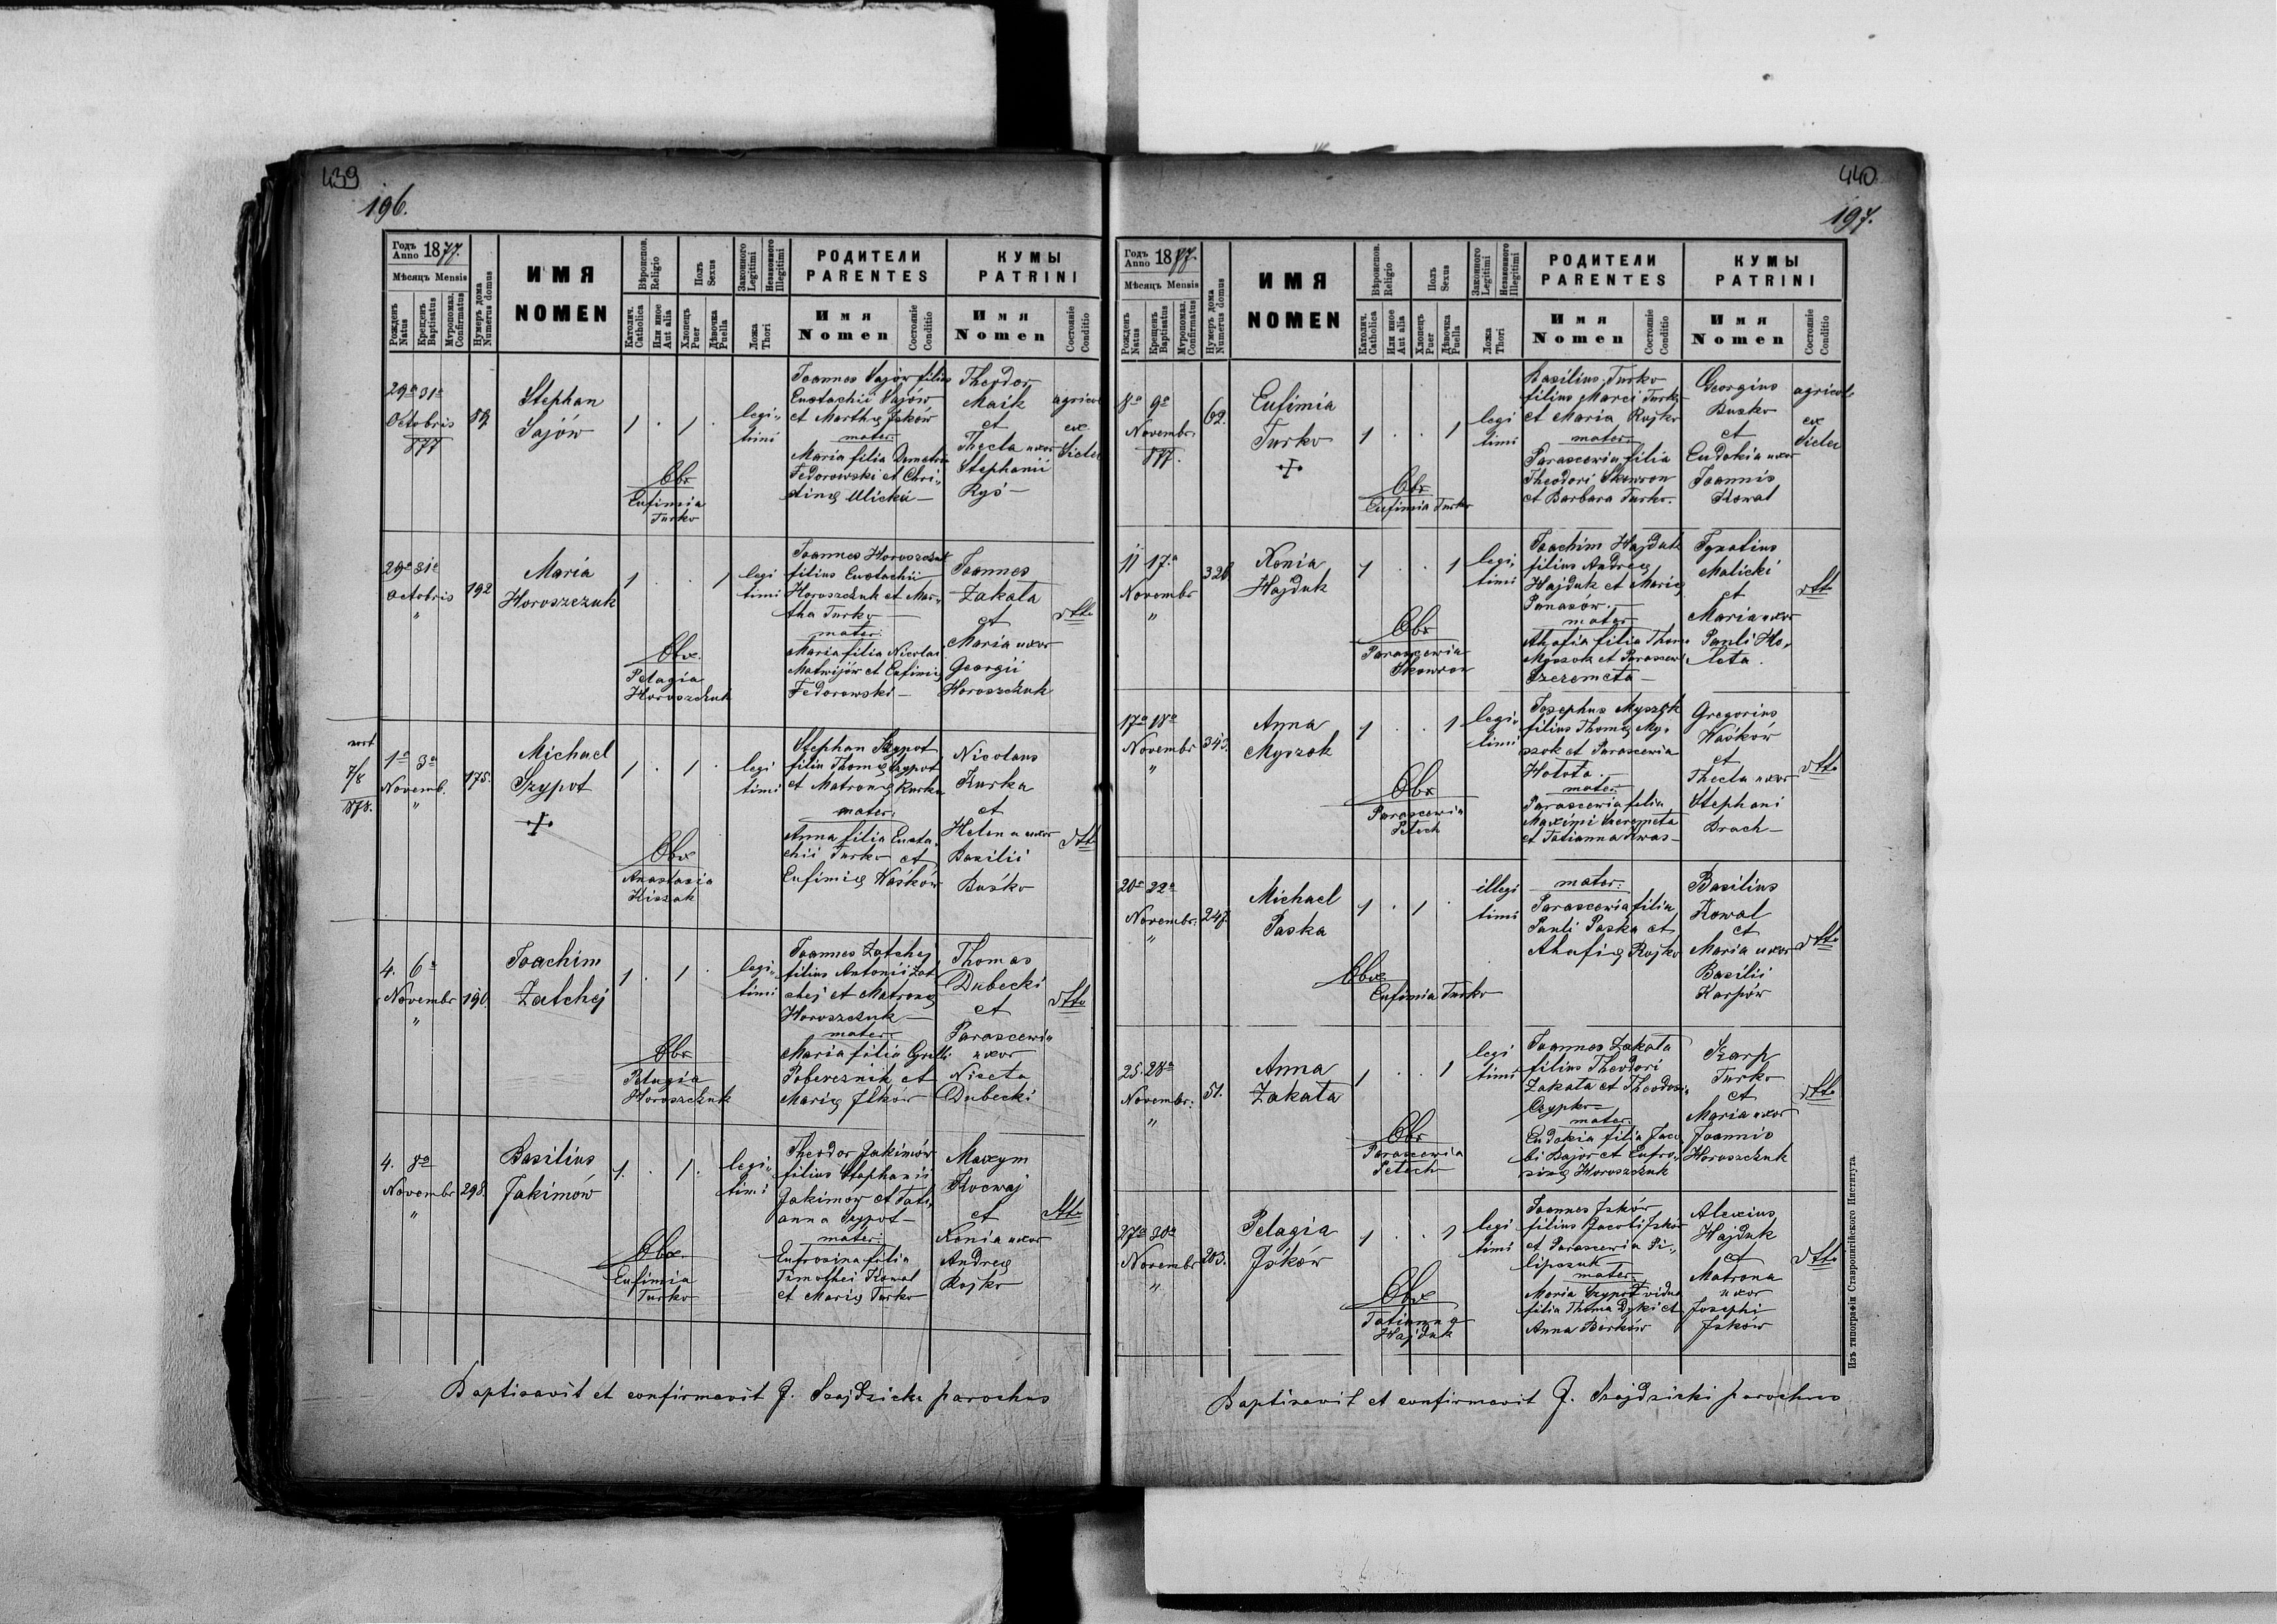 439
196.
Годъ Anno 1877.
Мѣсяцъ Mensis
Рожденъ Natus
Крещенъ Baptisatus
Мѵропомаз. Confirmatus
Нумеръ дома Numerus domus
ИМЯ
NOMEN
Вѣроиспов. Religio
Католич. Catholica
Или иное Aut alia
Полъ Sexus
Хлопецъ Puer
Дѣвочка Puella
Законного Legitimi
Незаконного Illegitimi
Ложа Thori
РОДИТЕЛИ
PARENTES
Имя
Nomen
Состояніе Conditio
КУМЫ
PATRINI
Имя
Nomen
Состояніе Conditio
29a 31a
Octobris
877
87
Stephan
Sajów
1 . 1 .
legi-
timi
Obx
Eufimia
Turko
Joannes Sajów filius
Eustachii Sajów
et Marthę Jśków
mater:
Maria filia Demetrii
Fedorowski et Chri-
stinę Ulicka
Theodor
Maik
et
Thecla uxor
Stephanii
Ryś
agricol
ex
Sielec
29a 31a
Octobris
"
192
Maria
Horoszczuk
1 . . 1
legi
timi
Obx.
Pelagia
Horoszczuk
Joannes Horoszczuk
filius Eustachii
Horoszczuk et Mar-
tha Turko
mater:
Maria filia Nicolai
Matwijów et Eufimię
Fedorowski
Joannes
Zakala
et
Maria uxor
Georgii
Horoszczuk
dtto
mort
7/8
878.
1a 3a
Novemb.
"
175.
Michael
Szypot
1 . 1 .
legi
timi
Obx
Anastasia
Hiszak
Stephan Szypot
filiu Thomę Szypot
et Matronę Kurka
mater:
Anna filia Eusta-
chii Turko et
Eufimię Waśków
Nicolaus
Kurka
et
Helena uxor
Basilii
Buśko
dtto
4. 6a
Novembr
"
190.
Joachim
Zatchej
1 . 1 .
legi-
timi
Obx
Pelagia
Horoszczuk
Joannes Zatchej
filius Antonii Zat
chej et Matronę
Horoszczuk
mater:
Maria filia Cyrilli
Pobereznik et
Marię Jśków
Thomas
Dubecki
et
Parascewia
uxor
Niceta
Dubecki
dtto
4. 8a
Novembr
"
298.
Basilius
Jakimów
1. . 1.
legi-
timi
Obx.
Eufimia
Turko
Theodor Jakimów
filius Stephanii
Jakimow et Tati-
anna Szypot
mater:
Eufrosina filia
Timothei Kowal
et Marię Turko
Maxym
Kocwaj
et
Xenia uxor
Andreę
Rojko
dtto
Baptisavit et confirmavit J. Szajdzicki parochus
440
197.
Годъ Anno 1877.
Мѣсяцъ Mensis
Рожденъ Natus
Крещенъ Baptisatus
Мѵропомаз. Confirmatus
Нумеръ дома Numerus domus
ИМЯ
NOMEN
Вѣроиспов. Religio
Католич. Catholica
Или иное Aut alia
Полъ Sexus
Хлопецъ Puer
Дѣвочка Puella
Законного Legitimi
Незаконного Illegitimi
Ложа Thori
РОДИТЕЛИ
PARENTES
Имя
Nomen
Состояніе Conditio
КУМЫ
PATRINI
Имя
Nomen
Состояніе Conditio
8a 9a
Novembr.
877.
62.
Eufimia
Turko
1 . . 1
legi
timi
Obx
Eufimia Turko
Basilius Turko
filius Marci Turko
et Maria Rojko
mater:
Parascewia filia
Theodori Skowron
et Barbara Turko.
Georgius
Busko
et
Eudokia uxor
Joannis
Kowal
agricol
ex
Sielec
11 17.a
Novembr
"
326
Xenia
Hajduk
1 . . 1
legi,
timi
Obx
Parascewia
Skowron
Joachim Hajduk
filius Andreę
Hajduk et Marię
Panasów.
mater
Ahafia filia Thom.
Myszok et Parascew.
Szeremeta
Ignatius
Malicki
et
Maria uxor
Pauli Ho-
lota.
dtto
17a 18a
Novembr
"
345.
Anna
Myszok
1 . . 1
legi-
timi
Obx
Parascewia
Petech
Josephus Myszok
filius Thomę My-
szok et Parascewia
Holota.
mater:
Parascewia filia
Maximi Szeremeta
et Tatianna Iwas
Gregorius
Waśków
et
Thecla uxor
Stephani
Drach
dtto
20a 22a
Novembr.
"
247.
Michael
Paska
1 . 1 .
illegi
timi
Obx
Eufimia Turko
mater:
Parascewia filia
Pauli Paska et
Ahafię Rojko
Basilius
Kowal
et
Maria uxor
Basilii
Karpów
dtto
25. 28a
Novembr.
"
51.
Anna
Zakala
1 . . 1
legi
timi
Obx
Parascewia
Petech
Joannes Zakala
filius Theodori
Zakala et Theodosi-
mater:
Eudokia filia Jaco
bi Sajor et Eufro-
sinę Horoszczuk
Karp
Turko
et
Maria uxor
Joannis
Horoszczuk
dtto
27a 30a
Novembr
"
203.
Pelagia
Jśków
1 . . 1
legi
timi
Obx
Tatianna
Hajduk
Joannes Jśków
filius Jacobi Jśków
et Parascewia Pi-
lipczuk
mater
Maria Szypot vidua
filia Thoma Dyki et
Anna Berków
Alexius
Hajduk
et
Matrona
uxor
Josephi
Jśków
dtto
Baptisavit et confirmavit J. Szajdzicki parochus
Изъ типографіи Ставропигійского Института